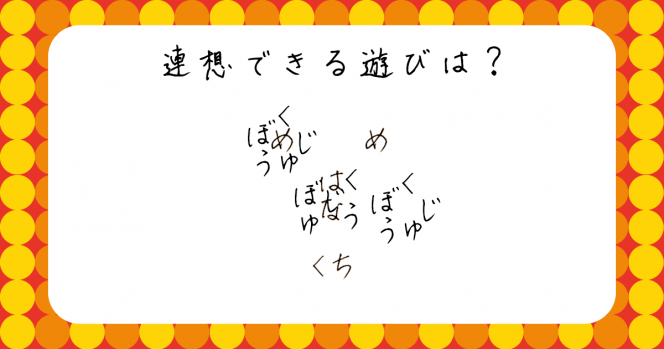 連想できる遊びは?
く
ぼめじ
うゅ
め
はく
ぼなう
ゅ
く
ぼじ
うゅ
くち